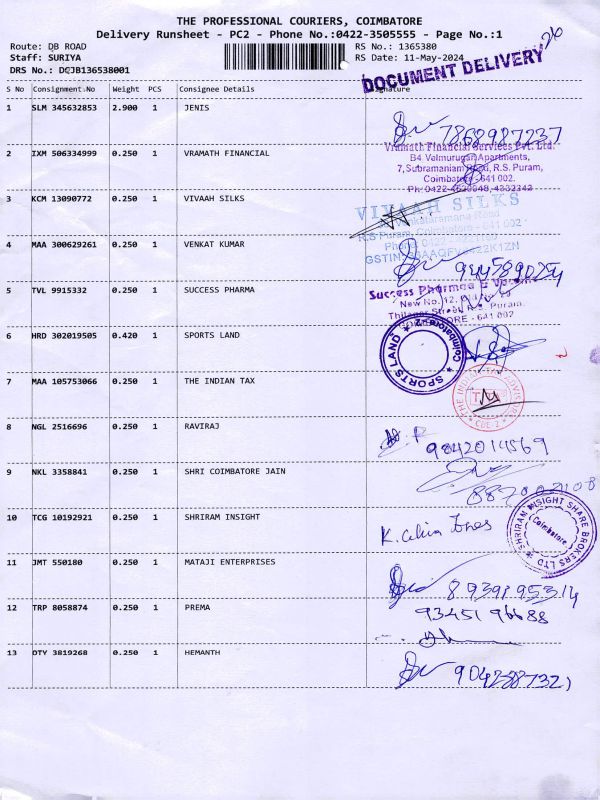 THE PROFESSIONAL COURIERS, COIMBATORE
Delivery Runsheet - PC2 - Phone No.:0422-3505555 - Page No.:1
Route: DB ROAD
Staff: SURIYA
DRS No.: DCJB136538001
RS No.: 1365380
RS Date: 11-May-2024
DOCUMENT DELIVERY
S No Consignment No Weight PCS Consignee Details Signature
1 SLM 345632853 2.900 1 JENIS
7868987237
2 IXM 506334999 0.250 1 VRAMATH FINANCIAL
Vramath Financial Services Pvt. Ltd.
B4 Valmurugan Apartments,
7, Subramaniam Road, R.S. Puram,
Coimbatore - 641 002.
3 KCM 13090772 0.250 1 VIVAAH SILKS
VIVAAH SILKS
R.S Puram, Coimbatore - 641 002
4 MAA 300629261 0.250 1 VENKAT KUMAR
5 TVL 9915332 0.250 1 SUCCESS PHARMA
Success Pharma
6 HRD 302019505 0.420 1 SPORTS LAND
SPORTS LAND
Coimbatore
7 MAA 105753066 0.250 1 THE INDIAN TAX
8 NGL 2516696 0.250 1 RAVIRAJ
9842014569
9 NKL 3358841 0.250 1 SHRI COIMBATORE JAIN
10 TCG 10192921 0.250 1 SHRIRAM INSIGHT
SHRIRAM INSIGHT SHARE BROKERS LTD
Coimbatore
11 JMT 550180 0.250 1 MATAJI ENTERPRISES
8939195314
12 TRP 8058874 0.250 1 PREMA
93451 96688
13 OTY 3819268 0.250 1 HEMANTH